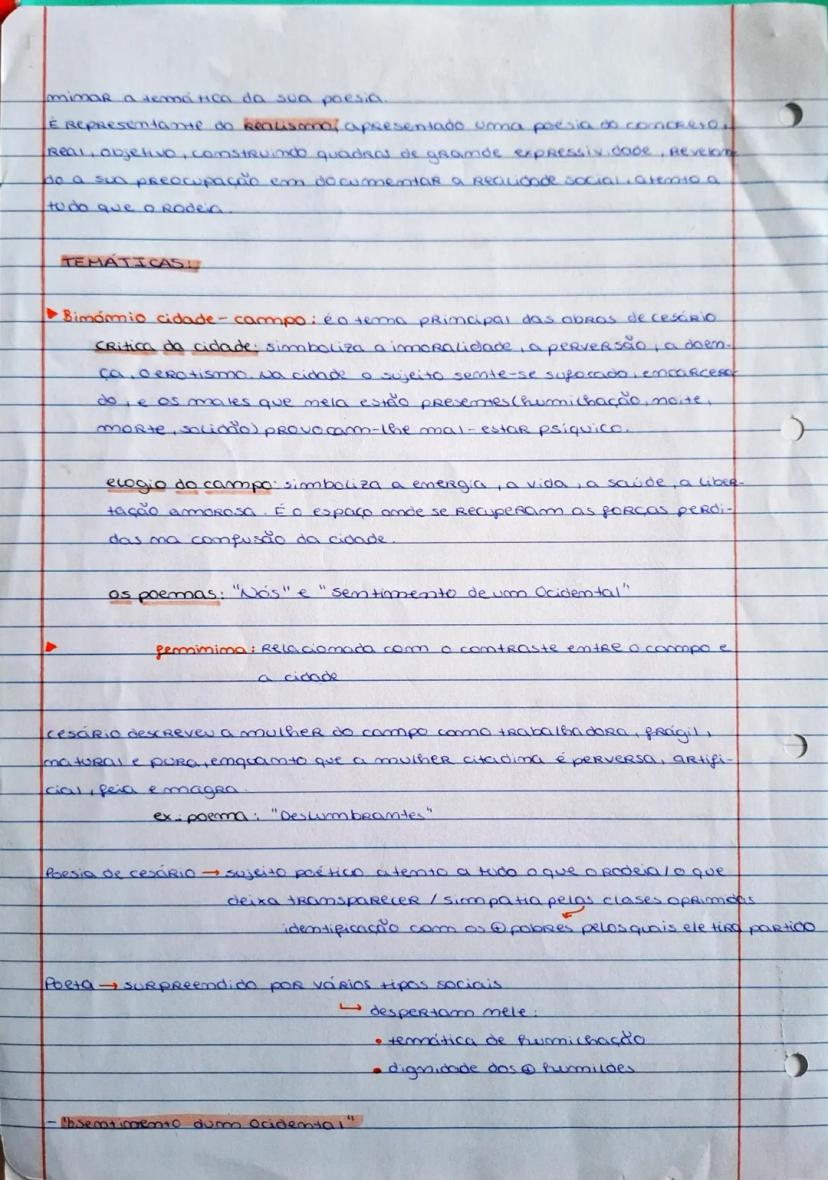 mimar a temática da sua poesia.
É Representante do Realismo, apresentado uma poesia do concreto,
Real, objetivo, construindo quadros de grande expressividade, Revelan-
do a sua preocupação em documentar a Realidade social, atento a
tudo que o Rodeia.
TEMÁTICAS:
▶ Binómio cidade-campo: é o tema principal das obras de cesário
crítica da cidade: simboliza a imoralidade, a perversão, a doen-
ça, o erotismo. Na cidade o sujeito sente-se sufocado, encarcera-
do, e os males que nela estão presentes (humilhação, noite,
morte, solidão) provocam-lhe mal-estar psíquico.
elogio do campo: simboliza a energia, a vida, a saúde, a liber-
tação amorosa. É o espaço onde se Recuperam as forças perdi-
das na confusão da cidade.
os poemas: "Nós" e "Sentimento de um Ocidental"
▶ feminina: Relacionada com o contraste entre o campo e
a cidade
cesário descreveu a mulher do campo como trabalhadora, frágil,
natural e pura, enquanto que a mulher citadina é perversa, artifi-
cial, feia e magra.
ex: poema: "Deslumbrantes"
Poesia de cesário → sujeito poético atento a tudo o que o rodeia / o que
deixa transparecer / simpatia pelas clases oprimidas
identificação com os ⊕ pobres pelos quais ele tira partido
Poeta → surpreendido por vários tipos sociais
↳ despertam nele:
• temática de humilhação
• dignidade dos ⊕ humildes
- "O sentimento dum Ocidental"